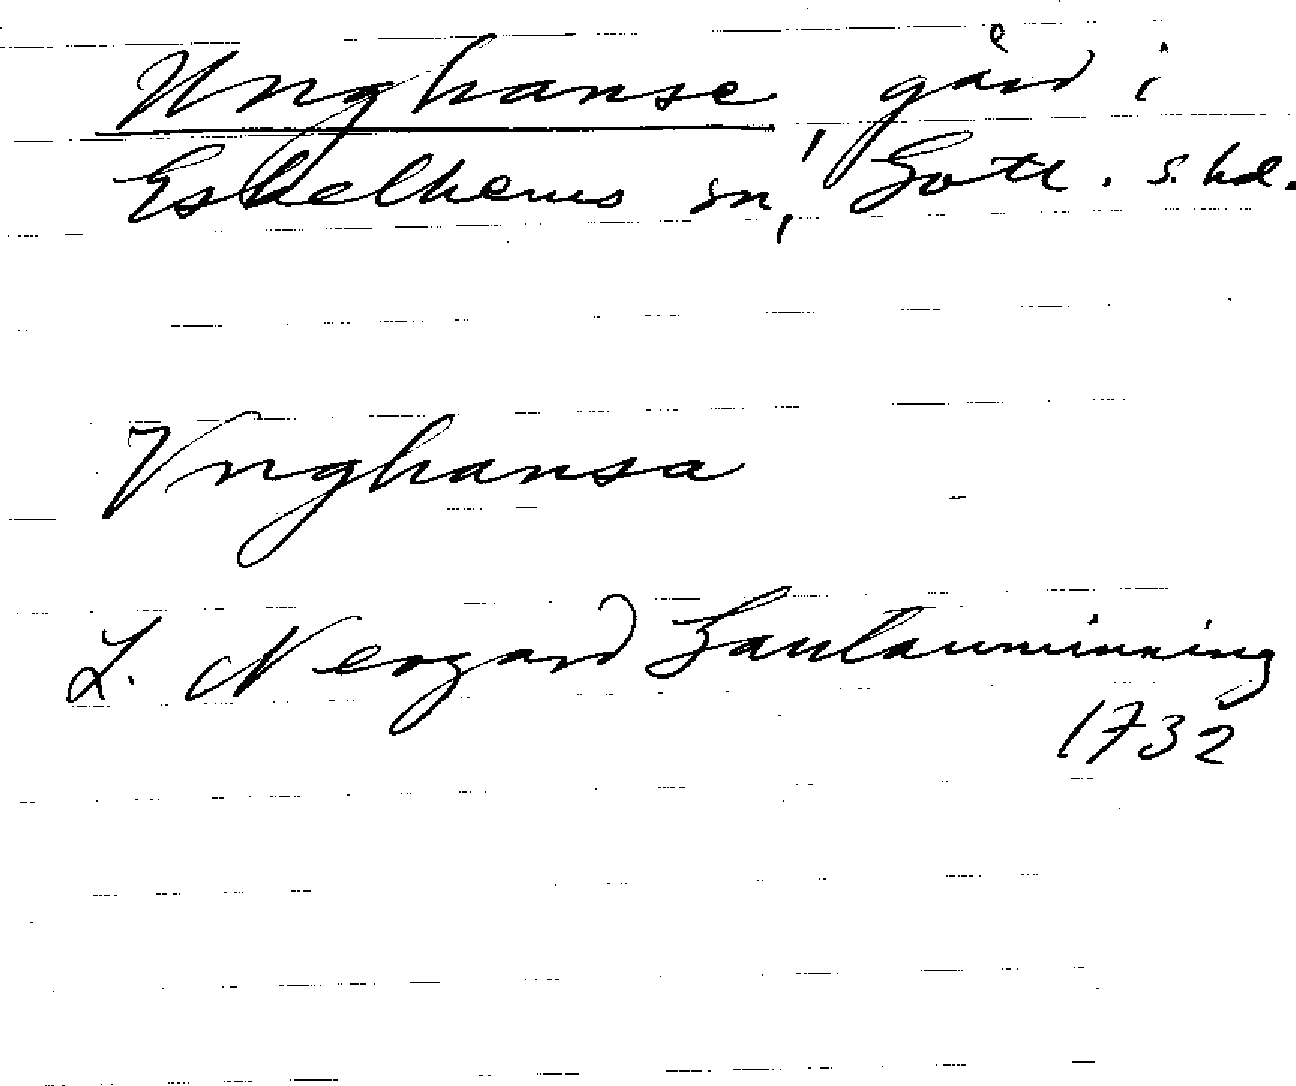 Unghanse gård i
Eskelhems sn, Gotl. s. hd.
Vnghansa
L. Neogard Gaulauminning
1732